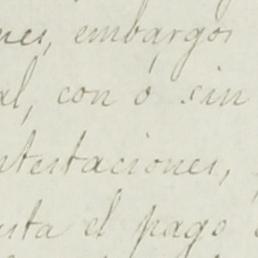 nes, embargos
al, con ó sin
ntestaciones,
sta el pago